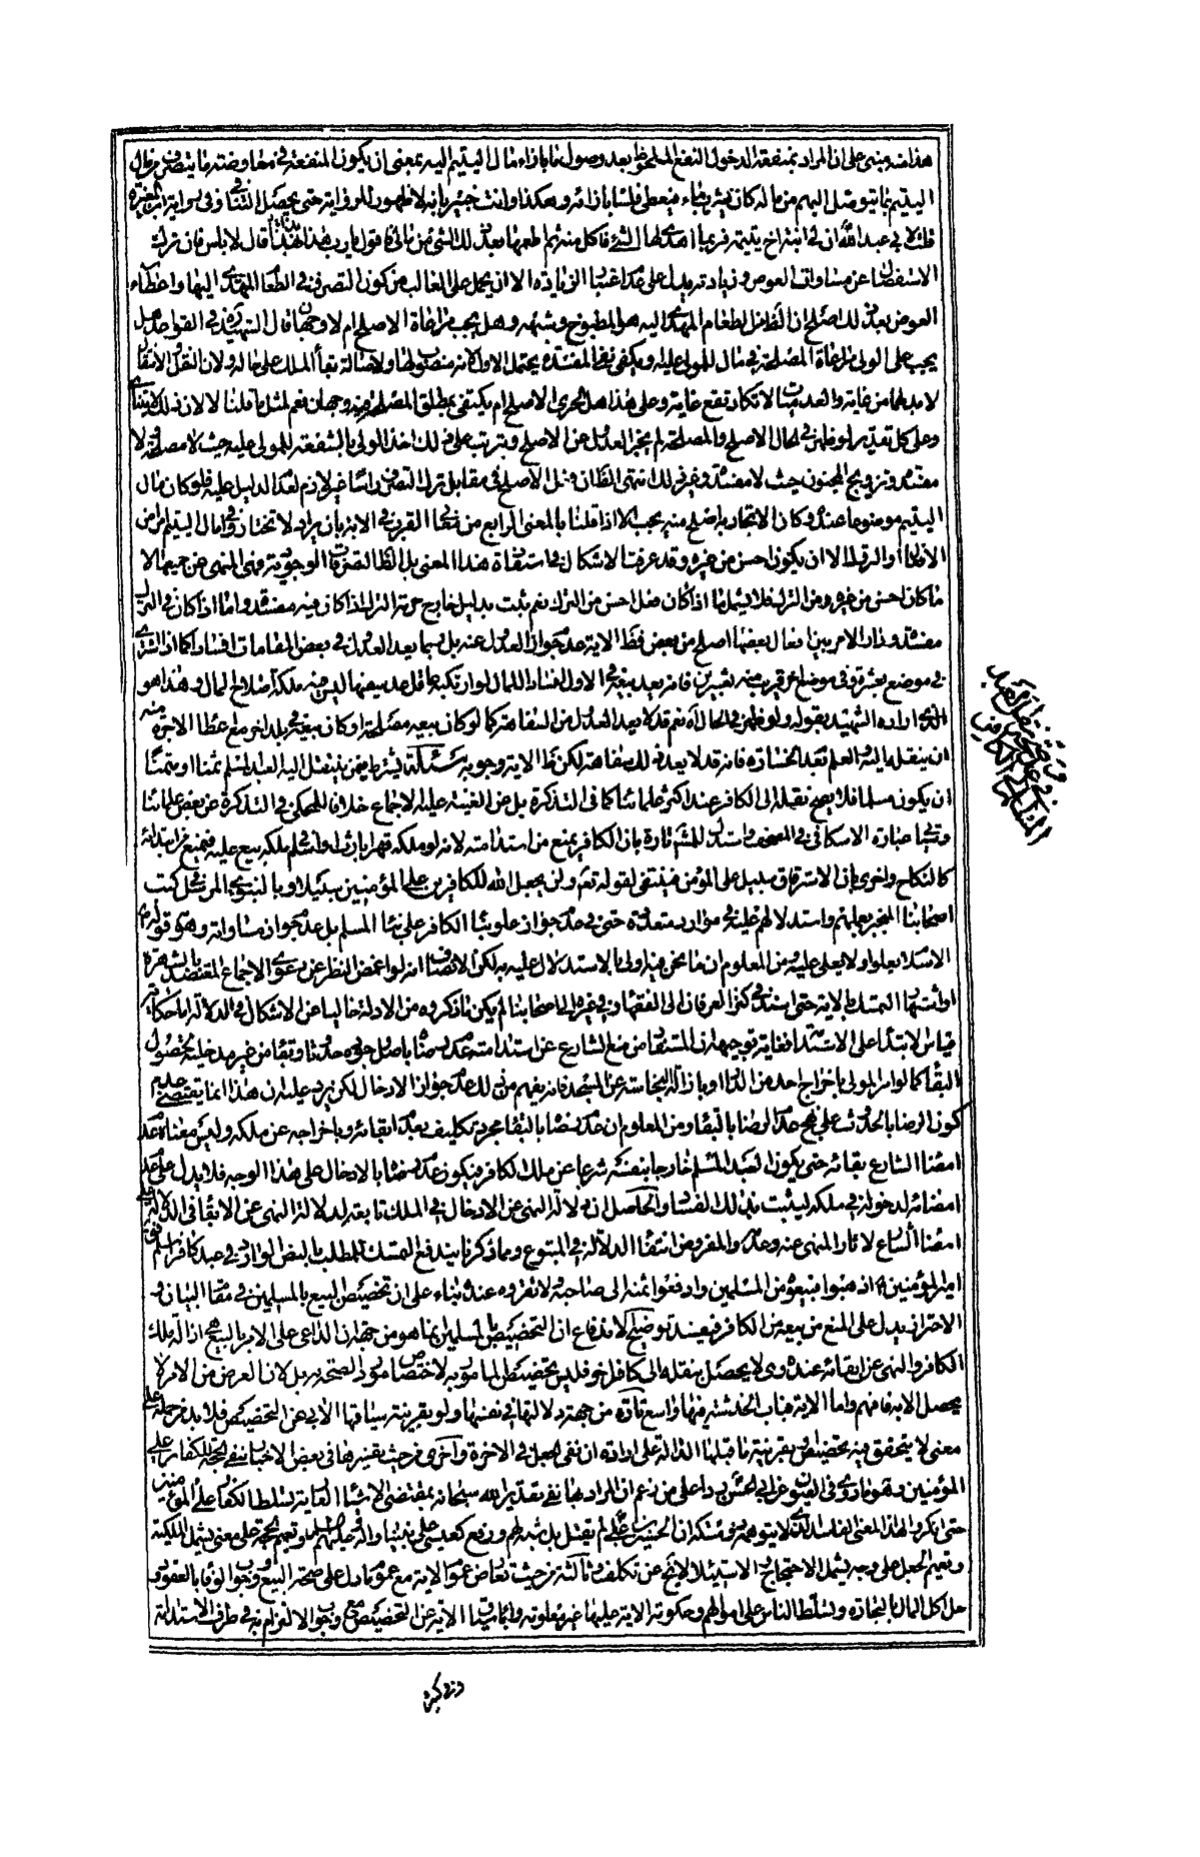 هذا منه مبنى على ان المراد بمنفعة الدخول النفع الملحوظ بعد وصول ما بازاء مال اليتيم اليه بمعنى ان يكون المنفعة فى معاوضة ما يتصرف من مال
اليتيم بما يتوصل اليهم من ماله كان يشرب ماء فيعطى فلسا بازائه وهكذا وانت خبير بانه لا ظهور للرواية حتى يحصل التنافى وفى رواية ابن المغيرة
قلت لابى عبد الله ان لى ابنة اخ يتيمة فربما اهدى لها الشئ فاكل منه ثم اطعمها بعد ذلك الشئ من مالى فاقول يا رب هذا بهذا قال لا باس فان ترك
الاستفصال عن مساواة العوض وزيادته يدل على عدم اعتبار الزيادة الا ان يحمل على الغالب من كون التصرف فى الطعام المهدى اليها واعطاء
العوض بعد ذلك اصلح اذ الظاهر من الطعام المهدى اليه هو المطبوخ وشبهه وهل يجب مراعاة الاصلح ام لا وجهان قال الشهيد ره فى القواعد هل
يجب على الولى مراعاة المصلحة فى مال المولى عليه او يكفى نفى المفسدة يحتمل الاول لانه منصوب لها ولاصالة بقاء الملك على حاله ولان النقل والانتقال
لا بد لهما من غاية والعدميات لا تكاد تقع غاية وعلى هذا هل يتحرى الاصلح ام يكتفى بمطلق المصلحة فيه وجهان نعم لمثل ما قلنا لا لان ذلك لا يتناهى
وعلى كل تقدير لو ظهر فى الحال الاصلح والمصلحة لم يجز العدول عن الاصلح ويترتب على ذلك اخذ الولى بالشفعة للمولى عليه حيث لا مصلحة ولا
مفسدة وتزويج المجنون حيث لا مفسدة وغير ذلك انتهى الظاهر ان فعل الاصلح فى مقابل ترك التصرف راسا غير لازم لعدم الدليل عليه فلو كان مال
اليتيم موضوعا عنده وكان الاتجار به اصلح منه لم يجب الا اذا قلنا بالمعنى الرابع من معانى القرب فى الاية بان يراد لا تختاروا فى مال اليتيم امرا من
الافعال او التروك الا ان يكون احسن من غيره وقد عرفت الاشكال فى استفادة هذا المعنى بل الظاهر التصرفات الوجودية فهى المنهى عن جميعها الا
ما كان احسن من غيره ومن الترك فلا يشمل ما اذا كان فعل احسن من الترك نعم ثبت بدليل خارج حرمة الترك اذا كان فيه مفسدة واما اذا كان فى الترك
مفسدة ودار الامر بين افعال بعضها اصلح من بعض فظاهر الاية عدم جواز العدول عنه بل ربما يعد العدول فى بعض المقامات افسادا كما اذا اشترى
فى موضع بعشرة وفى موضع اخر قريب منه بعشرين فانه يعد بيعه فى الاول افسادا للمال لو ارتكبه عاقل عد سفيها ليس فيه ملكة اصلاح المال وهذا هو
الذى اراده الشهيد بقوله ولو ظهر فى الحال اه نعم قد لا يعد العدول من السفاهة كما لو كان بيعه مصلحة وكان بيعه فى بلد اخر مع اعطاء الاجرة منه
ان ينقله اليه والعلم بعدم الخسارة فانه قد لا يعد ذلك سفاهة لكن ظاهر الاية وجوبه مسئلة يشترط فيمن ينتقل اليه العبد المسلم ثمنا او مثمنا
ان يكون مسلما فلا يصح نقله الى الكافر عند اكثر علمائنا كما فى التذكرة بل عن الغنية عليه الاجماع خلافا للمحكى فى التذكرة عن بعض علمائنا
وحكى عبارة الاسكافى فى المصحف واستدل للمشهور تارة بان الكافر يمنع من استدامته لانه لو ملكه قهرا بارث او اسلم ملكه بيع عليه فيمنع من ابتدائه
كالنكاح واخرى بان الاسترقاق سبيل على المؤمن فينتفى لقوله تعالى ولن يجعل الله للكافرين على المؤمنين سبيلا وبالنبوى المرسل فى كتب
اصحابنا المنجبر بعملهم واستدلالهم عليه فى موارد متعددة حتى فى عدم جواز علو بناء الكافر على بناء المسلم بل عدم جواز مساواته وهو قوله ص
الاسلام يعلو ولا يعلى عليه ومن المعلوم ان ما نحن فيه اولى بالاستدلال عليه به لكن الانصاف انه لو اغمض النظر عن دعوى الاجماع المعتضدة بالشهرة
واشتهار التمسك بالاية حتى اسنده فى كنز العرفان الى الفقهاء وفى غيره الى اصحابنا لم يكن ما ذكروه من الادلة خاليا عن الاشكال فى الدلالة اما حكاية
قياس الابتداء على الاستدامة فغاية توجيهه ان المستفاد من منع الشارع عن استدامته عدم رضاه باصل وجوده حدوثا وبقاء من غير مدخلية لخصوص
البقاء كما لو امر المولى باخراج احد من الدار او بازالة النجاسة عن المسجد فانه يفهم من ذلك عدم جواز الادخال لكن يرد عليه ان هذا انما يقتضى عدم
كون الرضا بالحدوث على نهج عدم الرضا بالبقاء ومن المعلوم ان عدم رضاه بالبقاء مجرد تكليف بعدم ابقائه وباخراجه عن ملكه وليس معناه عدم
امضاء الشارع بقائه حتى يكون العبد المسلم خارجا بنفسه شرعا عن ملك الكافر فيكون عدم رضاه بالادخال على هذا الوجه فلا يدل على عدم
امضائه لدخوله فى ملكه ليثبت بذلك الفساد والحاصل ان دلالة النهى عن الادخال فى الملك تابعة لدلالة النهى عن الابقاء فى الدلالة على
امضاء الشارع لاثار المنهى عنه وعدمه والمفروض انتفاء الدلالة فى المتبوع ومما ذكرنا يندفع التمسك للمطلب بالنص الوارد فى عبد كافر اسلم فقال
امير المؤمنين ع اذهبوا فبيعوه من المسلمين وادفعوا ثمنه الى صاحبه ولا تقروه عنده بناء على ان تخصيص البيع بالمسلمين فى مقام البيان و
الاحتراز يدل على المنع من بيعه من الكافر فيفسد توضيح الاندفاع ان التخصيص بالمسلمين انما هو من جهة ان الداعى على الامر بالبيع هى ازالة ملك
الكافر والنهى عن ابقائه عنده وهى لا يحصل بنقله الى كافر اخر فليس تخصيص المامور به لاختصاص مورد الصحة به بل لان الغرض من الامر لا
يحصل الا به فافهم واما الاية فباب الخدشة فيها واسع تارة من جهة دلالتها فى نفسها ولو بقرينة سياقها الابى عن التخصيص فلا بد من حمله على
معنى لا يتحقق فيه تخصيص او بقرينة ما قبلها الدالة على ارادة ان نفى الجعل فى الاخرة واخرى من حيث تفسيرها فى بعض الاخبار بنفى الحجة للكفار على
المؤمنين وهو ما روى فى العيون عن ابى الحسن ع ردا على من زعم ان المراد بها نفى تقدير الله سبحانه بمقتضى الاسباب العادية تسلط الكفار على المؤمنين
حتى انكروا لهذا المعنى الفاسد الذى لا يتوهمه ذو مسكة ان الحسين بن على ع لم يقتل بل شبه لهم ورفع كعيسى على نبينا واله وعليه السلام وتعميم الحجة على معنى يشمل الملكية
وتعميم الجعل على وجه يشمل الاحتجاج والاستيلاء لا يخ عن تكلف وثالثة من حيث تعارض عموم الاية مع عموم ما دل على صحة البيع ووجوب الوفاء بالعقود و
حل اكل المال بالتجارة وتسلط الناس على اموالهم وحكومة الاية عليها غير معلومة واباء سياق الاية عن التخصيص مع وجوب الالتزام به فى طرف الاستدامة